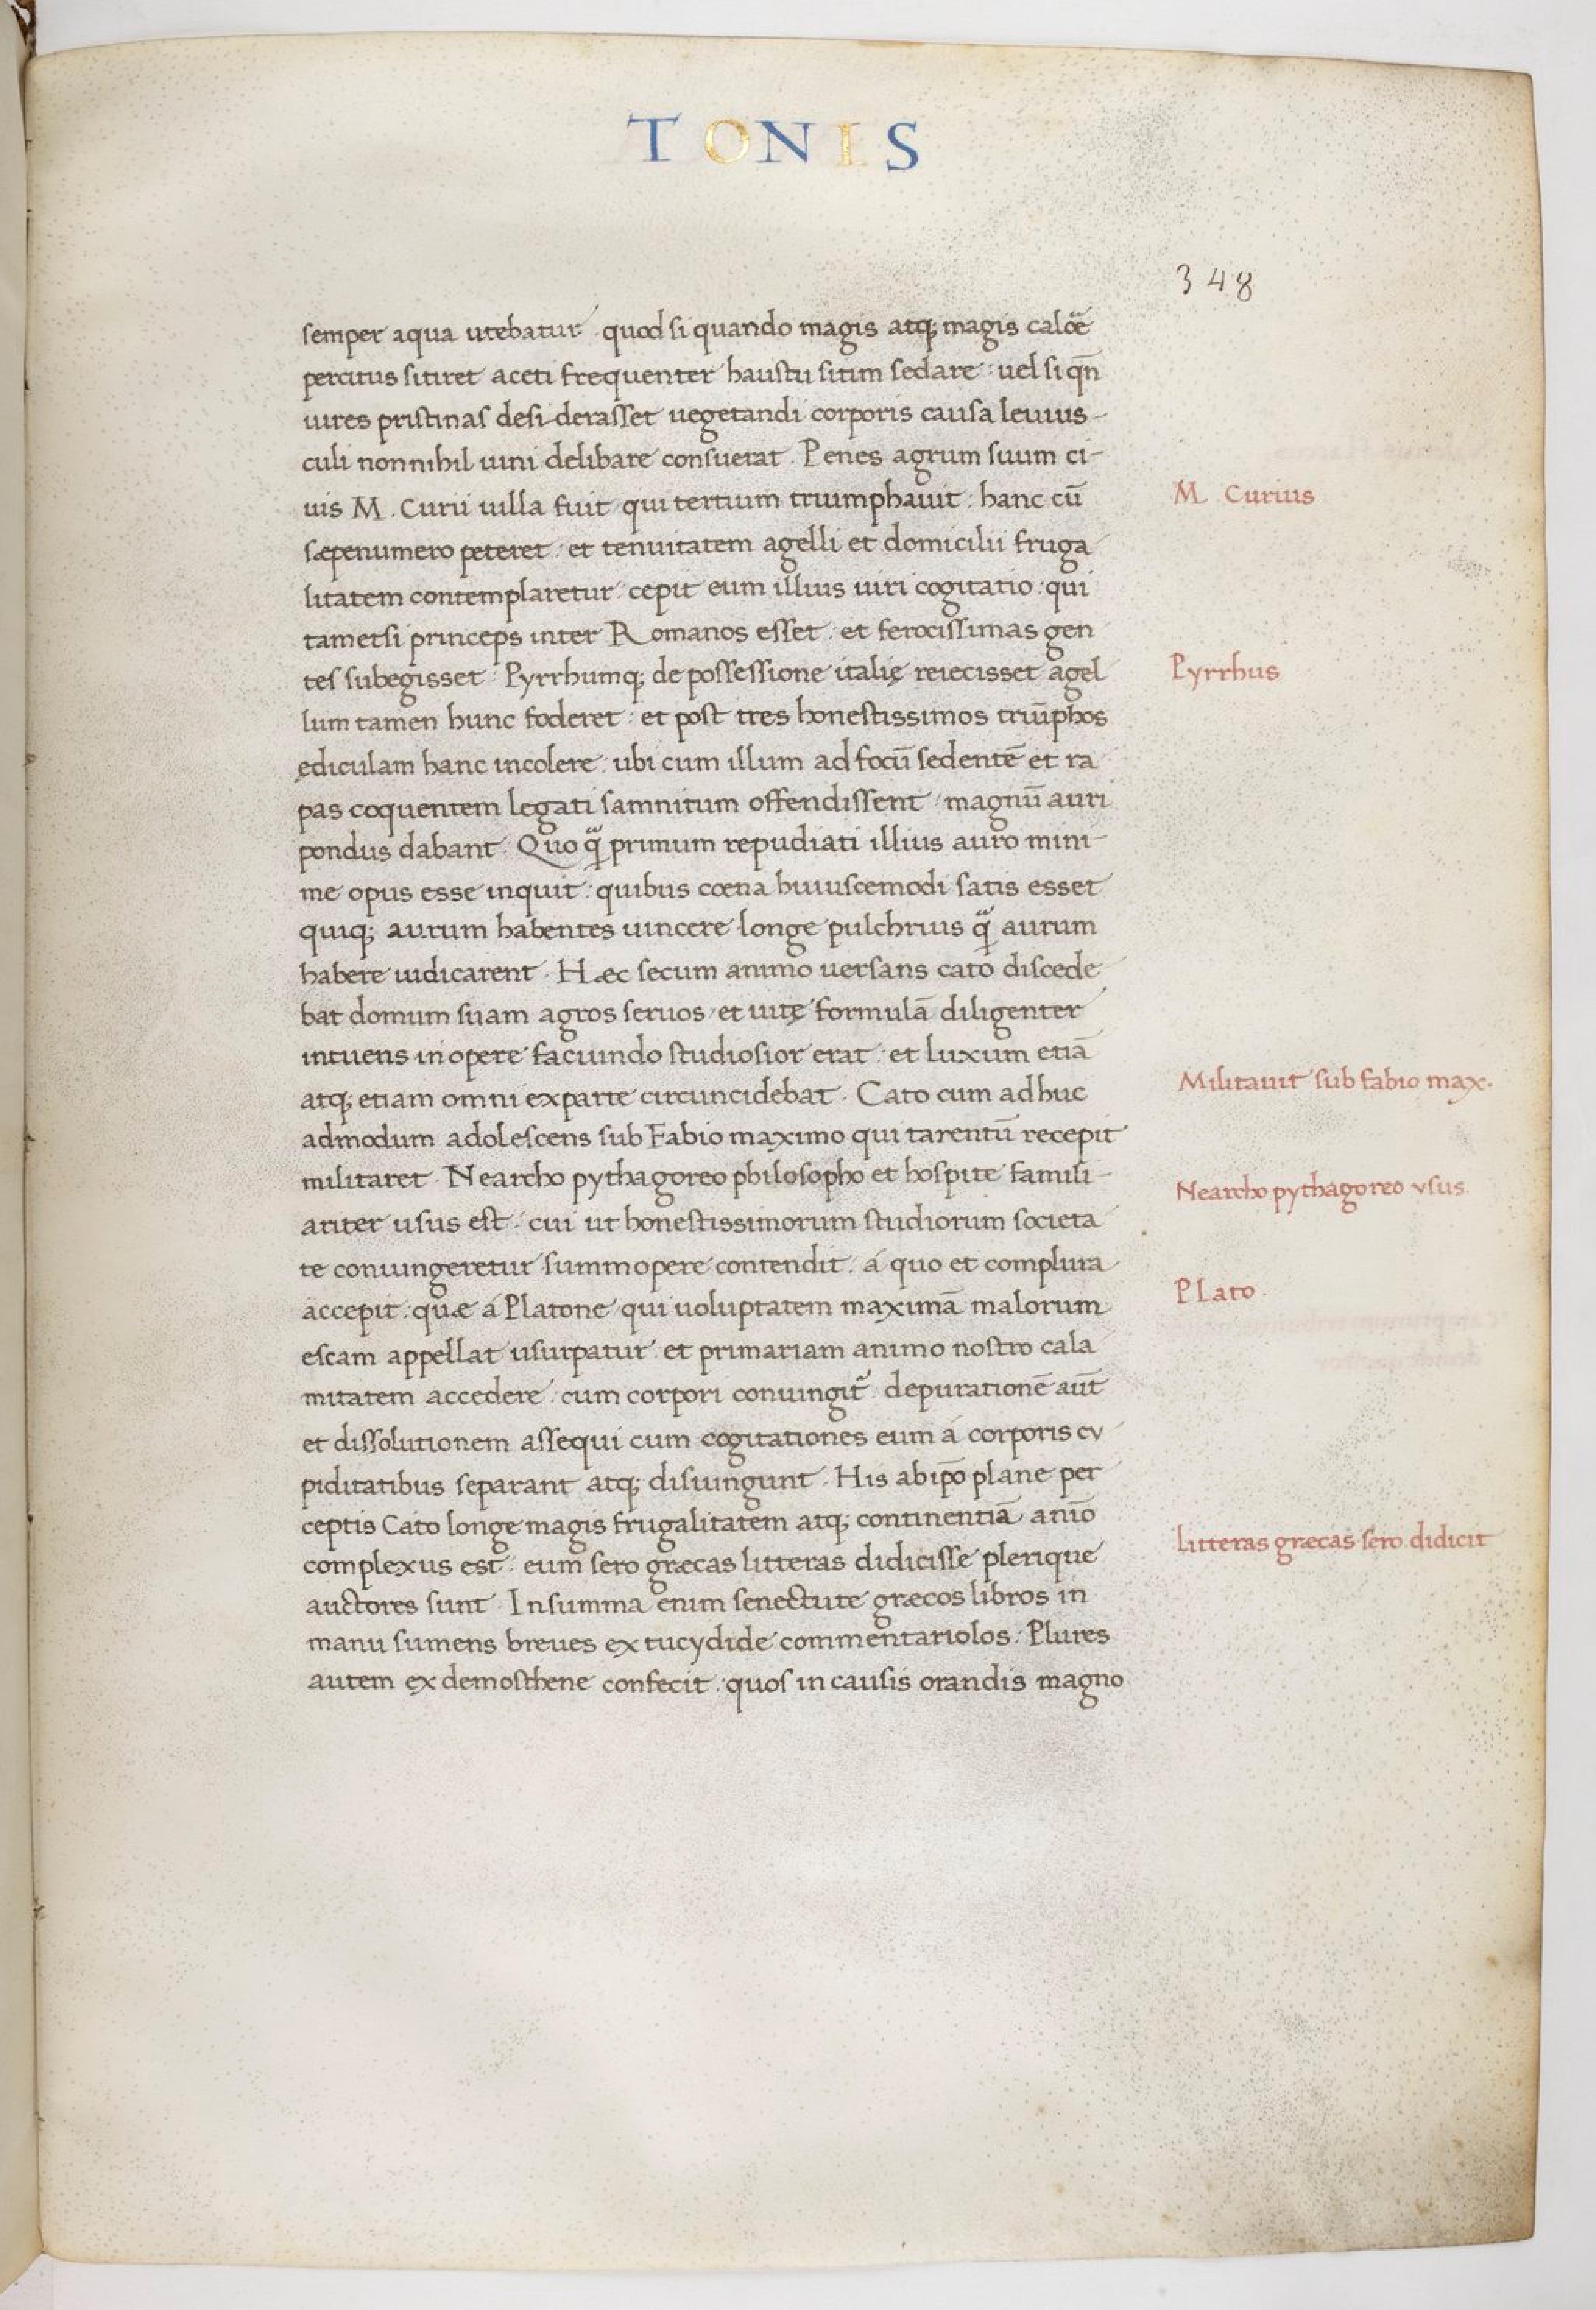 TONIS
348
semper aqua utebatur. quod si quando magis atq; magis caloē
percitus sitiret aceti frequenter haustu sitim sedare: uel si qn̄
uires pristinas desiderasset uegetandi corporis causa leuius-
culi nonnihil uini delibare consuerat. Penes agrum suum ci-
uis M. Curii uilla fuit qui tertium triumphauit: hanc cū
M. Curius
sæpenumero peteret: et tenuitatem agelli et domicilii fruga
litatem contemplaretur cepit eum illius uiri cogitatio: qui
tametsi princeps inter Romanos esset: et ferocissimas gen
tes subegisset: Pyrrhumq; de possessione italię reiecisset agel
Pyrrhus
lum tamen hunc foderet: et post tres honestissimos triūphos
ediculam hanc incolere: ubi cum illum ad focū sedentē et ra
pas coquentem legati samnitum offendissent magnū auri
pondus dabant. Quo q̃ primum repudiati illius auro mini-
me opus esse inquit: quibus cœna huiuscemodi satis esset
quiq; aurum habentes uincere longe pulchrius q̃ aurum
habere iudicarent. Hæc secum animo uersans cato discede
bat domum suam agros seruos et uitę formulā diligenter
intuens in opere faciundo studiosior erat: et luxum etiā
atq; etiam omni exparte circuncidebat. Cato cum adhuc
Militauit sub fabio max.
admodum adolescens sub Fabio maximo qui tarentū recepit
militaret. Nearcho pythagoreo philosopho et hospite famili-
Nearcho pythagoreo vsus
ariter usus est: cui ut honestissimorum studiorum societa
te coniungeretur summopere contendit: á quo et complura
accepit: quæ á Platone qui uoluptatem maximā malorum
Plato.
escam appellat usurpatur: et primariam animo nostro cala
mitatem accedere: cum corpori coniungit̃: depurationē aūt
et dissolutionem assequi cum cogitationes eum á corporis cv
piditatibus separant atq; disiungunt. His ab ip̄o plane per
ceptis Cato longe magis frugalitatem atq; continentiā anīo
complexus est: eum sero græcas litteras didicisse plerique
litteras græcas sero didicit
auctores sunt. In summa enim senectute græcos libros in
manu sumens breues ex tucydide commentariolos: Plures
autem ex demosthene confecit: quos in causis orandis magno